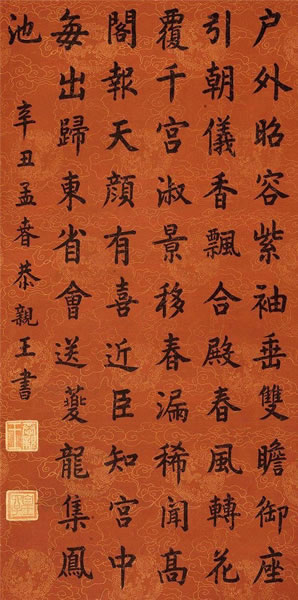 户外昭容紫袖垂雙瞻御座
引朝儀香飄合殿春風轉花
覆千宮淑景移春漏稀聞髙
閣報天顔有喜近臣知宮中
每出歸東省會送夔龍集鳳
池
辛丑孟春恭親王書